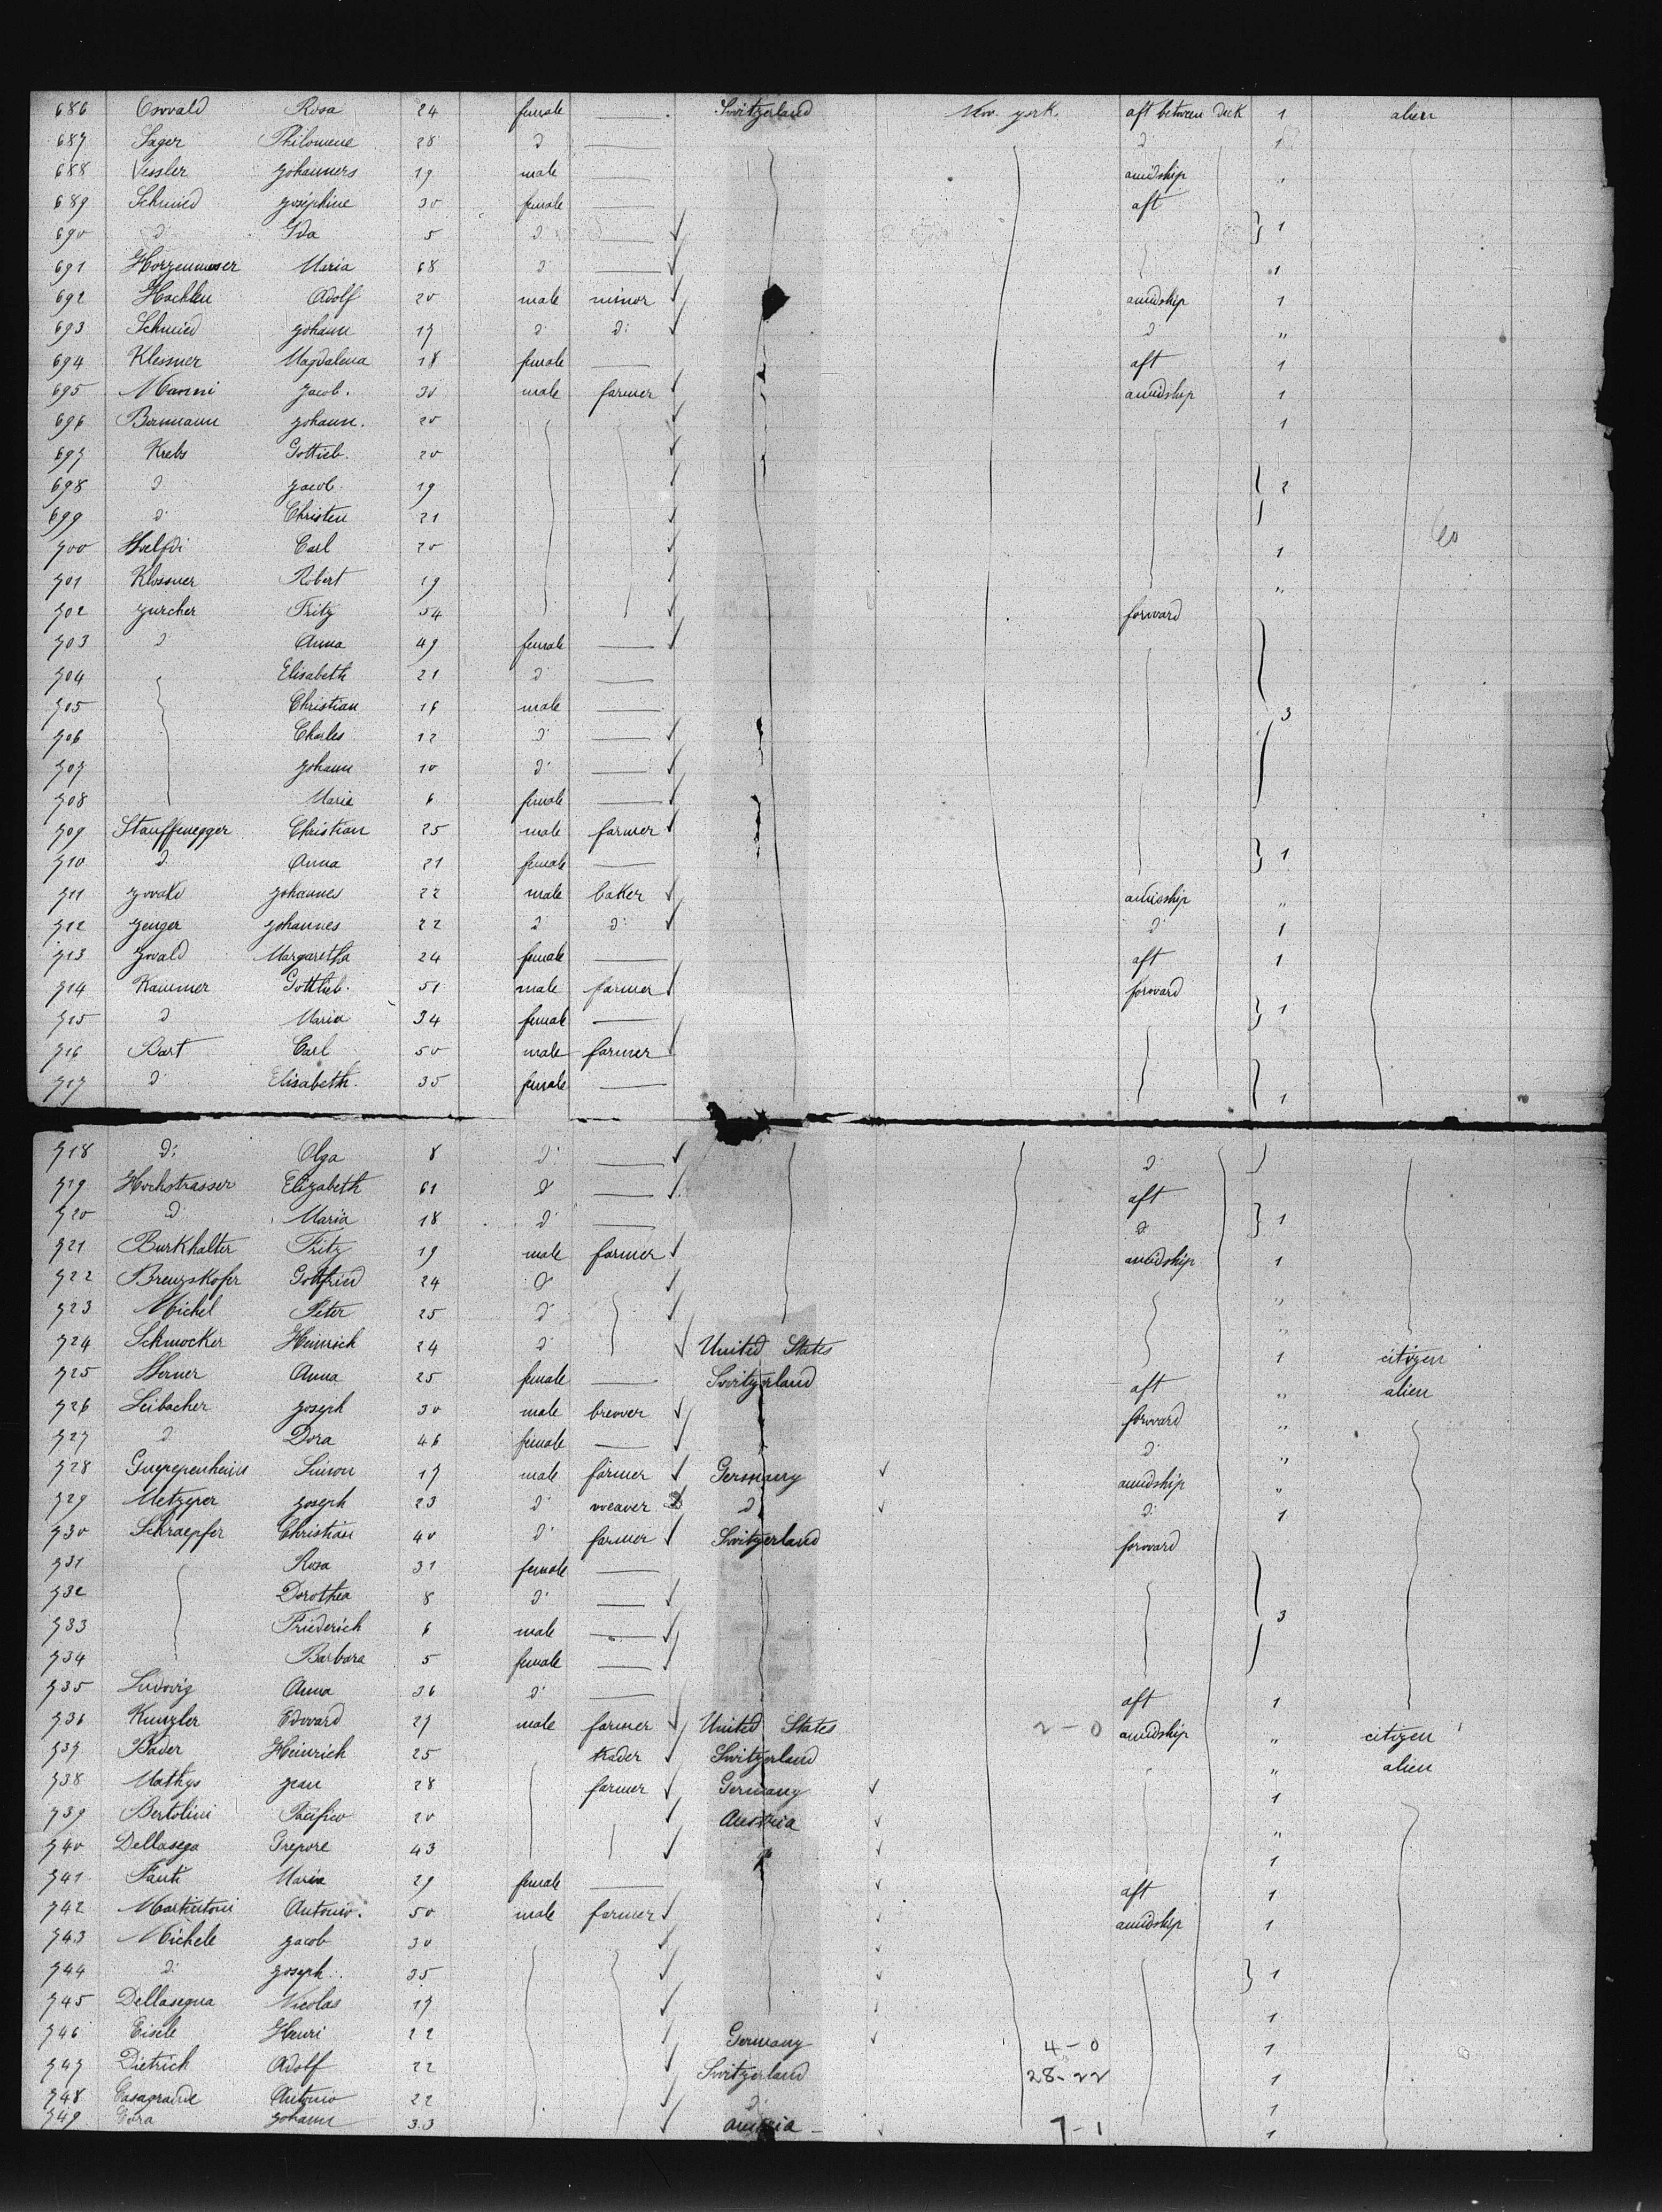 686 Oswald Rosa 24 female — Switzerland New york. aft between deck 1 alien
687 Sager Philomene 28 d — d 1
688 Vessler Johanners 19 male — amidship "
689 Schmied Josephine 30 female — aft
690 d Ida 5 d — 1
691 Maria 68 d — 1
692 Adolf 20 male minor amidship 1
693 Schmied Johann 17 d d: d "
694 Klessner Magdalena 18 female — aft 1
695 Manni Jacob. 30 male farmer amidship 1
696 Bermann Johann. 20 1
697 Krebs Gottieb. 20
698 d Jacob 19 2
699 d Christen 21
700 Carl 20 1
701 Klossner Robert 19 "
702 Zurcher Fritz 54 forward
703 d Anna 49 female —
704 Elisabeth 21 d —
705 Christian 16 male — 3
706 Charles 12 d —
707 Johann 10 d —
708 Maria 6 female —
709 Stauffenegger Christian 25 male farmer
710 d Anna 21 female — 1
711 Johannes 22 male baker amidship "
712 Zenger Johannes 22 d d: d 1
713 Zwald Margaretha 24 female — aft 1
714 Kammer Gottlieb. 51 male farmer forward
715 d Maria 34 female — 1
716 Bart Carl 50 male farmer
717 d Elisabeth. 35 female — 1
718 d: Olga 8 d — d
719 Hochstrasser Elizabeth 61 d — aft
720 d Maria 18 d — d 1
721 Burkhalter Fritz 19 male farmer amidship 1
722 Brenzikofer Gottfried 24 d
723 Michel Peter 25 d "
724 Schmocker Heinrich 24 d United States 1 citizen
725 Werner Anna 25 female — Switzerland aft " alien
726 Leibacher Joseph 30 male brewer forward "
727 d Dora 46 female — d "
728 Simon 17 male farmer Germany amidship "
729 Metzger Joseph 23 d weaver d d 1
730 Schraepfer Christian 40 d farmer Switzerland forward
731 Rosa 31 female —
732 Dorothea 8 d —
733 Friederich 6 male — 3
734 Barbara 5 female —
735 Ludwig Anna 36 d — aft 1
736 Kunzler Edward 27 male farmer United States 2-0 amidship " citizen
737 Bader Heinrich 25 trader Switzerland " alien
738 Mathys Jean 28 farmer Germany 1
739 Bertolini Pacifico 20 Austria "
740 Dellasega Grepore 43 1
741 Fanti Maria 29 female — aft 1
742 Martintoni Antonio. 50 male farmer amidship 1
743 Michele Jacob 30
744 d: Joseph 35 1
745 Dellasegna Nicolas 17 1
746 Eisele Henri 22 Germany 4-0 1
747 Dietrich Adolf 22 Switzerland 28-22 1
748 Casagrande Antonio 22 d 1
749 Johann 33 Austria 7-1 1